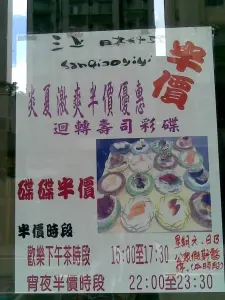 半價
炎夏激爽半價優惠
迴轉壽司彩碟
碟碟半價
半價時段
歡樂下午茶時段 15:00至17:30
宵夜半價時段 22:00至23:30
星期六、日及
公眾假期